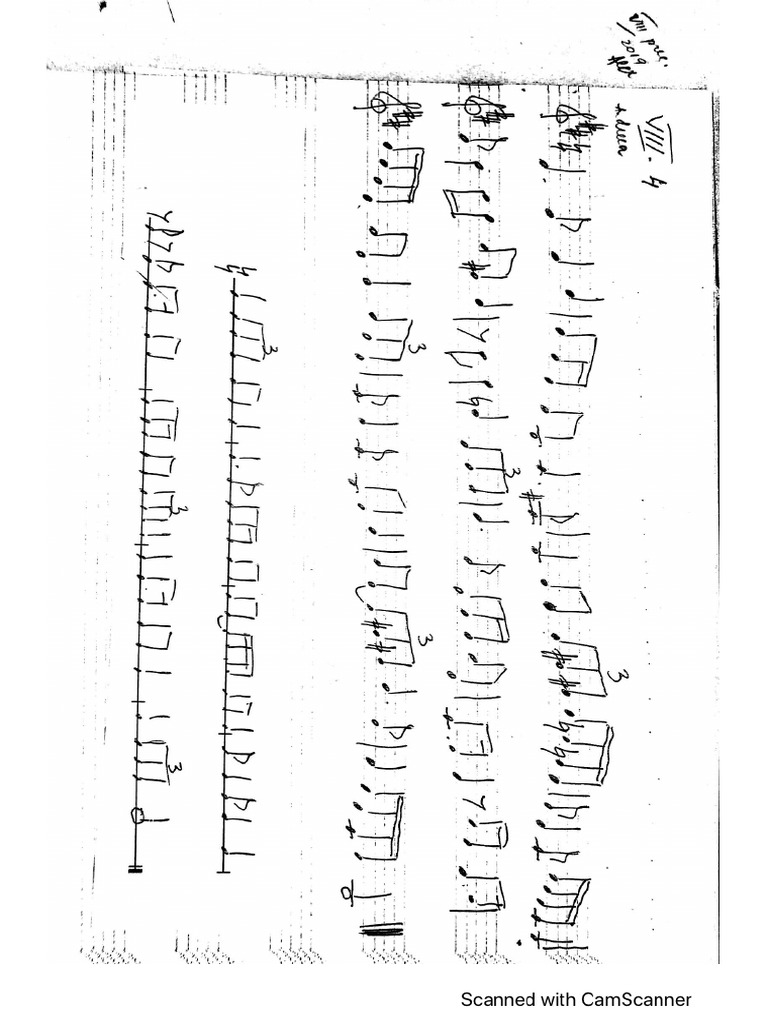 VIII pre.
/2019
VIII. 4
3
3
3
3
3
3
3
Scanned with CamScanner